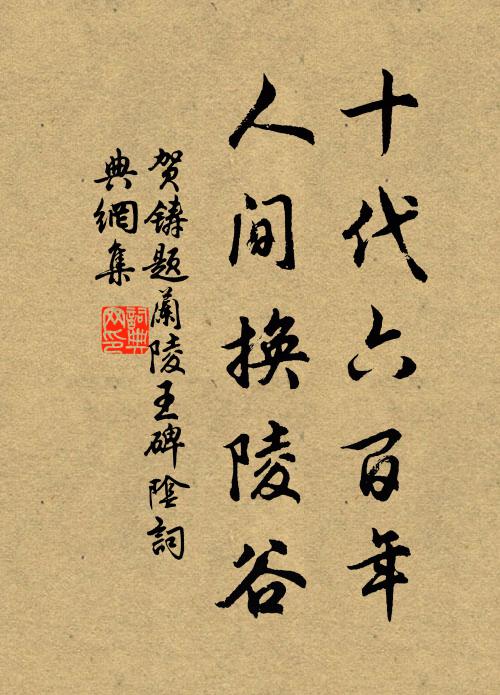 十代六百年
人间换陵谷
贺铸题蘭陵王碑陰詞
典網集
詞典网印